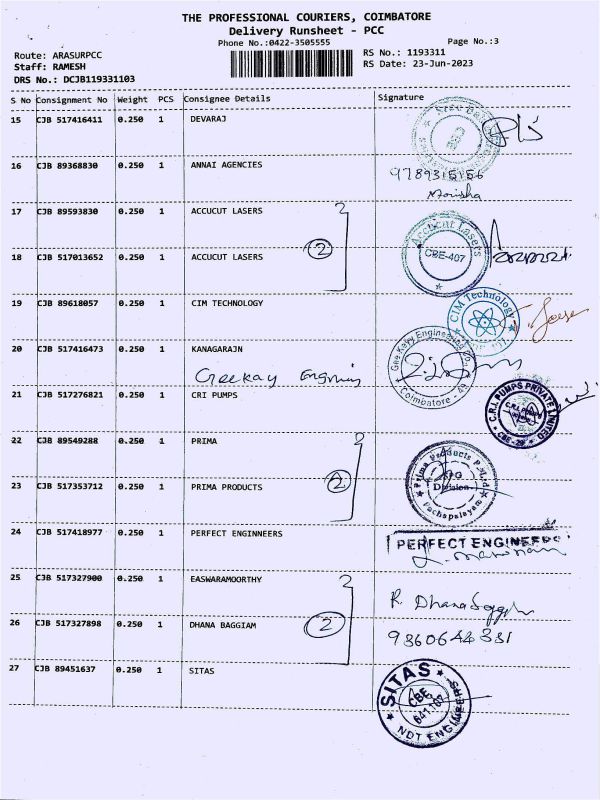 THE PROFESSIONAL COURIERS, COIMBATORE
Delivery Runsheet - PCC
Phone No.:0422-3505555
Page No.:3
Route: ARASURPCC
Staff: RAMESH
DRS No.: DCJB119331103
RS No.: 1193311
RS Date: 23-Jun-2023
S No Consignment No Weight PCS Consignee Details Signature
15 CJB 517416411 0.250 1 DEVARAJ
16 CJB 89368830 0.250 1 ANNAI AGENCIES
9789315156
17 CJB 89593830 0.250 1 ACCUCUT LASERS
2
Accucut Lasers
CBE-407
18 CJB 517013652 0.250 1 ACCUCUT LASERS
19 CJB 89618057 0.250 1 CIM TECHNOLOGY
CIM Technology
20 CJB 517416473 0.250 1 KANAGARAJN
Geekay
Gee Kayy Engineering Co.,
Coimbatore - 49
21 CJB 517276821 0.250 1 CRI PUMPS
C.R.I. PUMPS PRIVATE LIMITED
CBE-29
22 CJB 89549288 0.250 1 PRIMA
2
Prima Products P. Ltd
Division
Pachapalayam
23 CJB 517353712 0.250 1 PRIMA PRODUCTS
24 CJB 517418977 0.250 1 PERFECT ENGINNEERS
PERFECT ENGINEERS
25 CJB 517327900 0.250 1 EASWARAMOORTHY
2
26 CJB 517327898 0.250 1 DHANA BAGGIAM
9360644331
27 CJB 89451637 0.250 1 SITAS
SITAS
CBE
641 107
NDT ENGINEERS